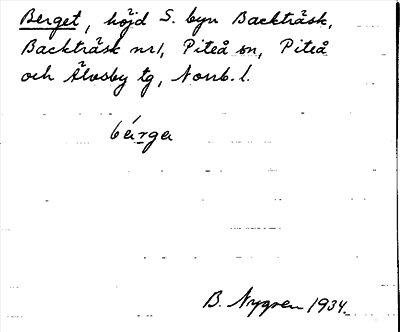 Berget, höjd S. byn Backträsk,
Backträsk nr 1, Piteå sn, Piteå
och Älvsby tg, Norrb. l.
bé̱rga
B. Nygren 1934.